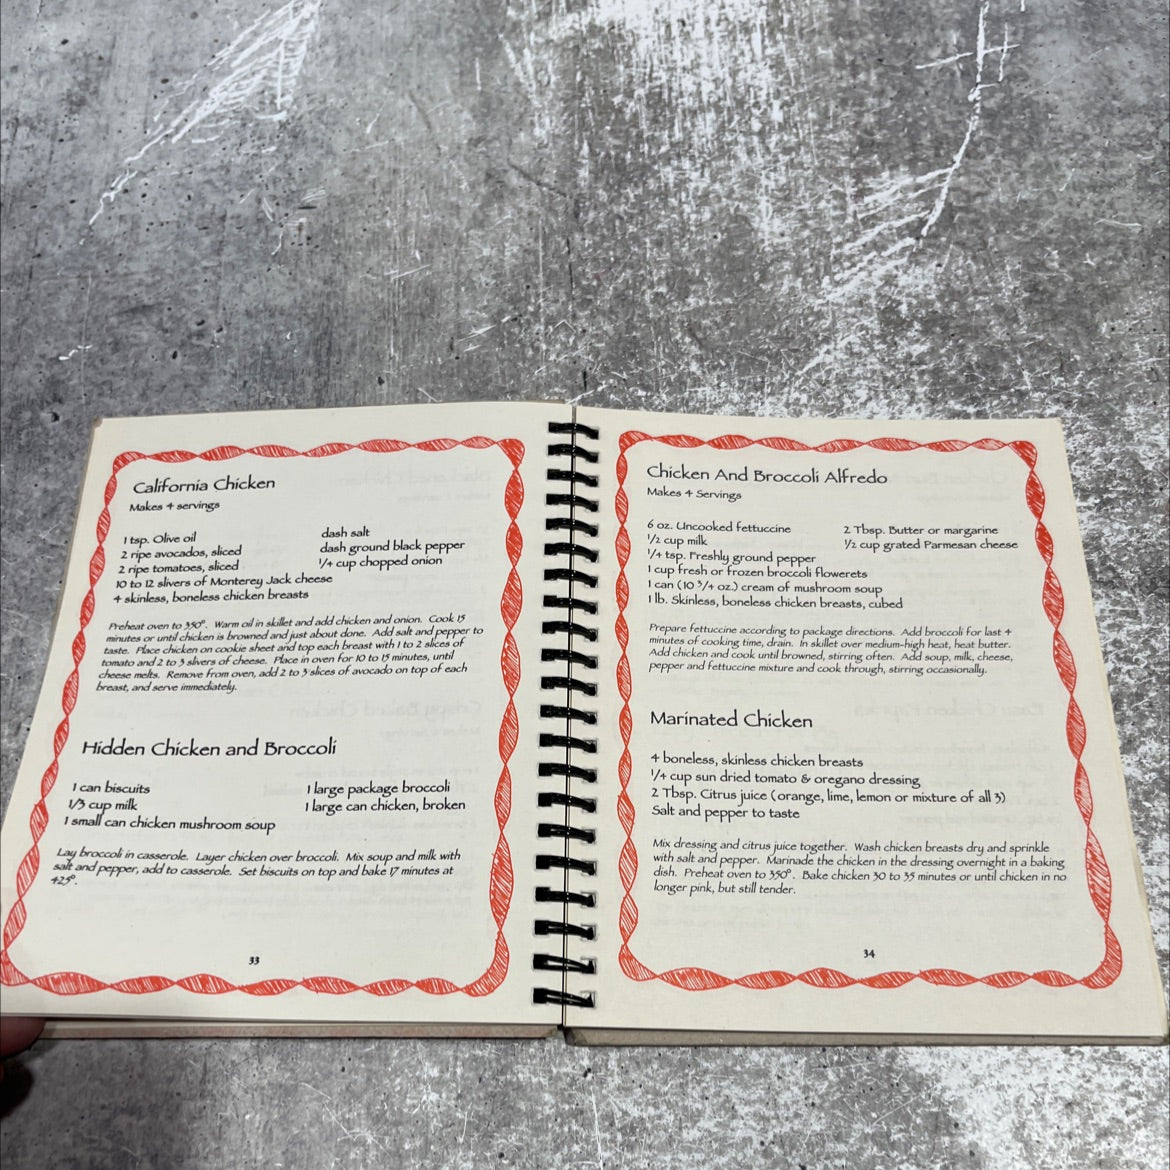 California Chicken
Makes 4 servings
1 tsp. Olive oil
2 ripe avocados, sliced
2 ripe tomatoes, sliced
10 to 12 slivers of Monterey Jack cheese
4 skinless, boneless chicken breasts
dash salt
dash ground black pepper
1/4 cup chopped onion
Preheat oven to 350°. Warm oil in skillet and add chicken and onion. Cook 15
minutes or until chicken is browned and just about done. Add salt and pepper to
taste. Place chicken on cookie sheet and top each breast with 1 to 2 slices of
tomato and 2 to 3 slivers of cheese. Place in oven for 10 to 15 minutes, until
cheese melts. Remove from oven, add 2 to 3 slices of avocado on top of each
breast, and serve immediately.
Hidden Chicken and Broccoli
1 can biscuits
1/3 cup milk
1 small can chicken mushroom soup
1 large package broccoli
1 large can chicken, broken
Lay broccoli in casserole. Layer chicken over broccoli. Mix soup and milk with
salt and pepper, add to casserole. Set biscuits on top and bake 17 minutes at
425°.
33
Chicken And Broccoli Alfredo
Makes 4 Servings
6 oz. Uncooked fettuccine
1/2 cup milk
1/4 tsp. Freshly ground pepper
1 cup fresh or frozen broccoli flowerets
1 can (10 3/4 oz.) cream of mushroom soup
1 lb. Skinless, boneless chicken breasts, cubed
2 Tbsp. Butter or margarine
1/2 cup grated Parmesan cheese
Prepare fettuccine according to package directions. Add broccoli for last 4
minutes of cooking time, drain. In skillet over medium-high heat, heat butter.
Add chicken and cook until browned, stirring often. Add soup, milk, cheese,
pepper and fettuccine mixture and cook through, stirring occasionally.
Marinated Chicken
4 boneless, skinless chicken breasts
1/4 cup sun dried tomato & oregano dressing
2 Tbsp. Citrus juice (orange, lime, lemon or mixture of all 3)
Salt and pepper to taste
Mix dressing and citrus juice together. Wash chicken breasts dry and sprinkle
with salt and pepper. Marinade the chicken in the dressing overnight in a baking
dish. Preheat oven to 350°. Bake chicken 30 to 35 minutes or until chicken in no
longer pink, but still tender.
34